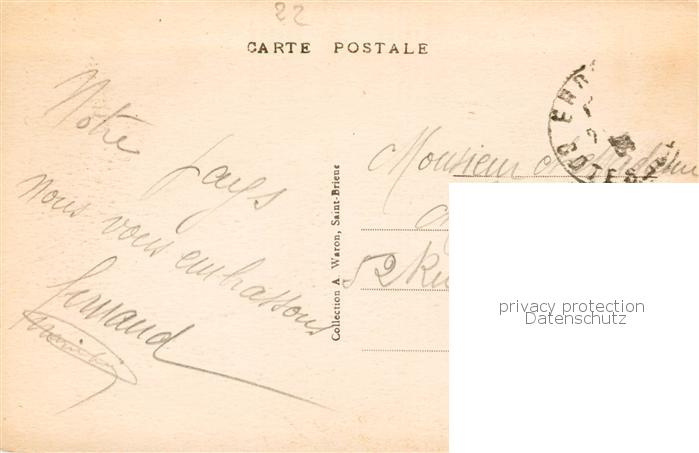 22
CARTE POSTALE
Notre
pays
nous vous embrassons
Fernand
Collection A. Waron, Saint-Brieuc
Monsieur
52 Rue
COTES
privacy protection
Datenschutz